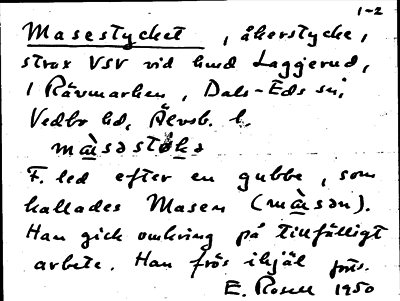 1-2
Masestycket, åkerstycke,
strax VSV vid hmd Laggerud,
i Rävmarken, Dals-Eds sn,
Vedbo hd, Älvsb. l.
mà̱sastøka
F. led efter en gubbe, som
kallades Masen (mà̱sən).
Han gick omkring på tillfälligt
arbete. Han frös ihjäl
E. Rosell 1950